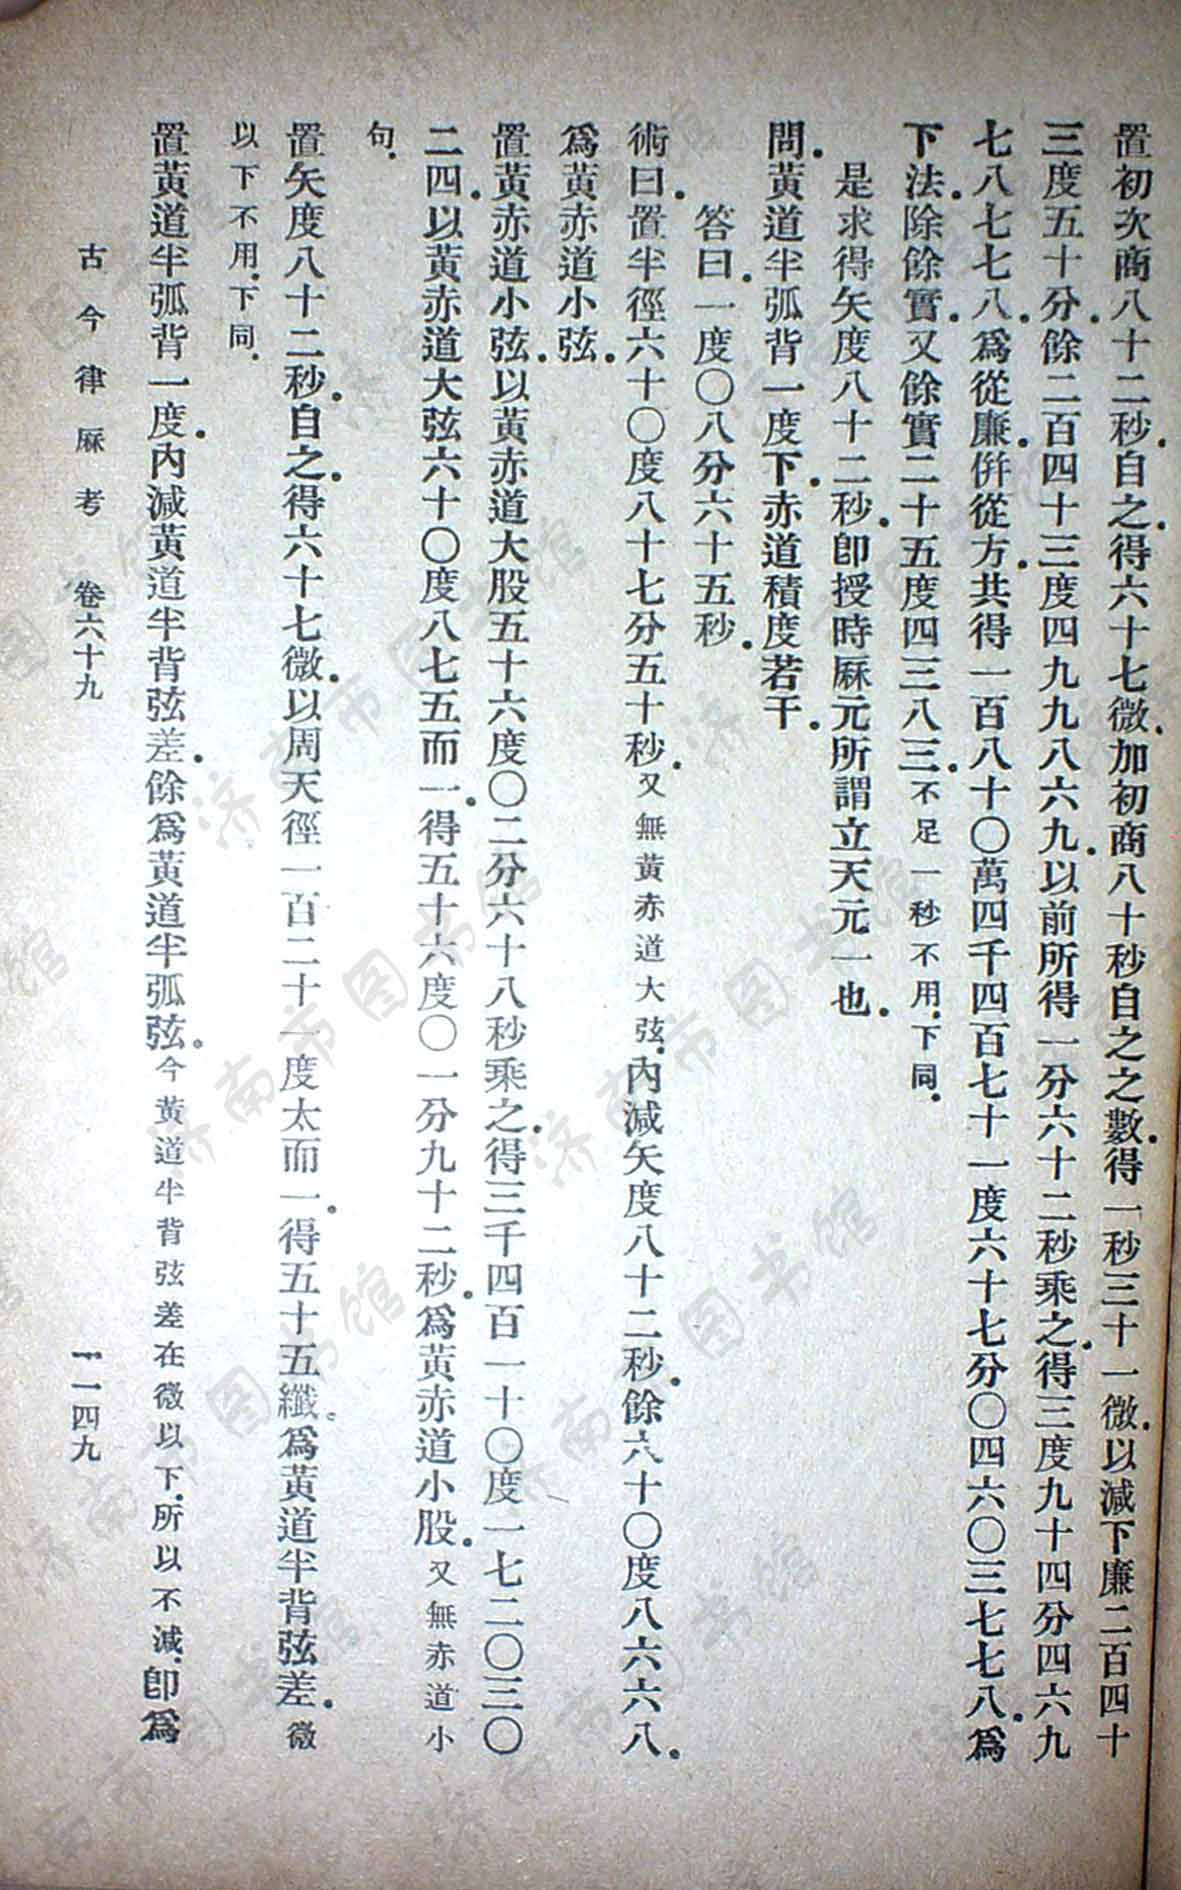 置初次商八十二秒.自之.得六十七微.加初商八十秒自之之數.得一秒三十一微.以減下廉二百四十
三度五十分.餘二百四十三度四九九八六九.以前所得一分六十二秒乘之.得三度九十四分四六九
七八七七八.爲從廉.倂從方.共得一百八十〇萬四千四百七十一度六十七分〇四六〇三七七八.爲
下法.除餘實.又餘實二十五度四三八三.不足一秒不用.下同.
是求得矢度八十二秒.卽授時厤元所謂立天元一也.
問.黃道半弧背一度下.赤道積度若干.
答曰.一度〇八分六十五秒.
術曰.置半徑六十〇度八十七分五十秒.又無黃赤道大弦.內減矢度八十二秒.餘六十〇度八六六八.
爲黃赤道小弦.
置黃赤道小弦.以黃赤道大股五十六度〇二分六十八秒乘之.得三千四百一十〇度一七二〇三〇
二四.以黃赤道大弦六十〇度八七五而一.得五十六度〇一分九十二秒.爲黃赤道小股.又無赤道小
句.
置矢度八十二秒.自之.得六十七微.以周天徑一百二十一度太而一.得五十五纖.爲黃道半背弦差.微
以下不用.下同.
置黃道半弧背一度.內減黃道半背弦差.餘爲黃道半弧弦.今黃道半背弦差在微以下.所以不減.卽爲
古今律厤考 卷六十九 一一四九